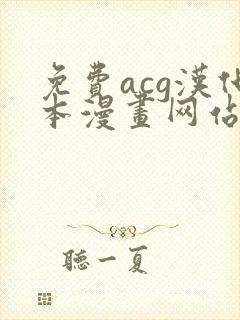 免費acg漢化
本漫畫网佔
聽一夏